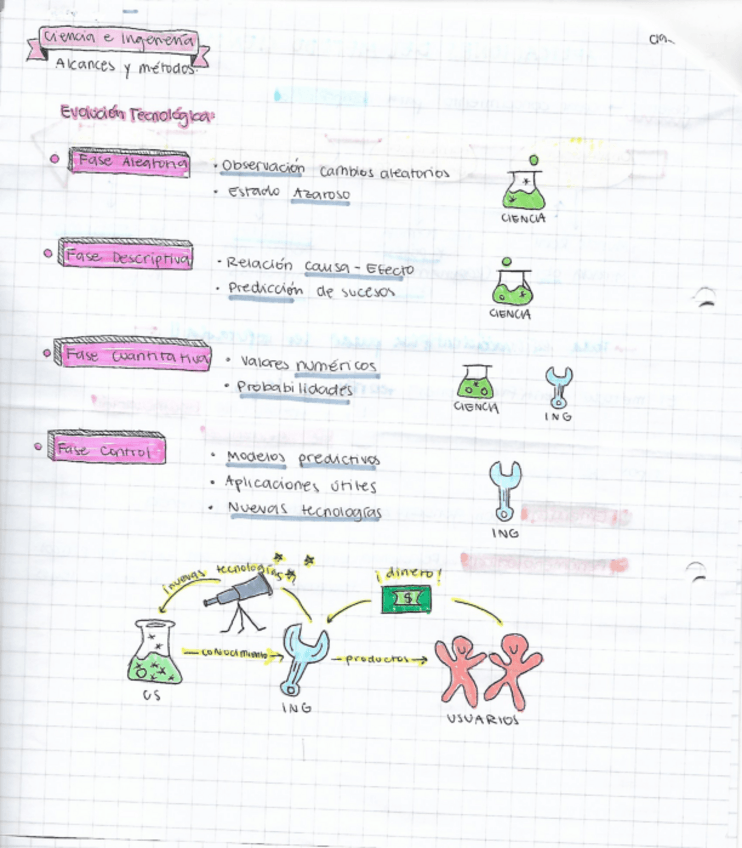 Ciencia e Ingeniería
Alcances y métodos.
Evolución Tecnológica
Fase Aleatoria
• Observación cambios aleatorios
• Estado Azaroso
CIENCIA
Fase Descriptiva
• Relación causa - Efecto
• Predicción de sucesos
CIENCIA
Fase Cuantitativa
• Valores numéricos
• Probabilidades
CIENCIA
ING
Fase Control
• Modelos predictivos
• Aplicaciones útiles
• Nuevas tecnologías
ING
¡nuevas tecnologías!
¡dinero!
$
conocimiento
productos
CS
ING
USUARIOS